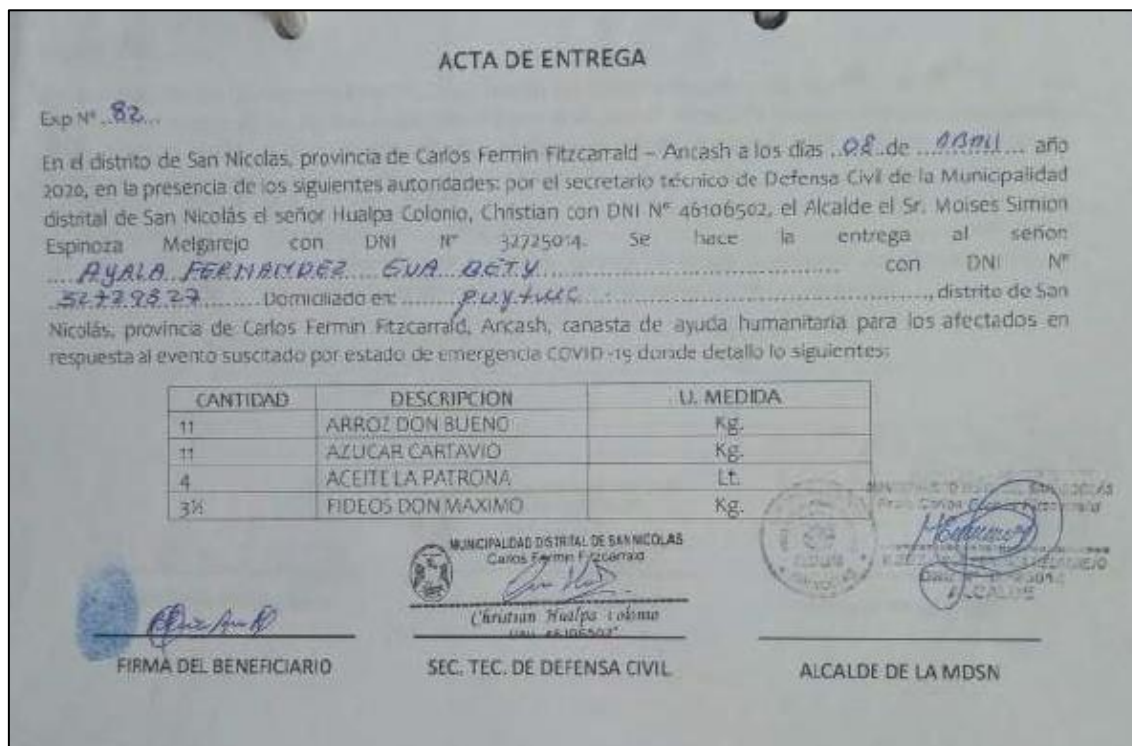 ACTA DE ENTREGA
Exp N° ..82...
En el distrito de San Nicolas, provincia de Carlos Fermin Fitzcarrald – Ancash a los días ..08..de ...ABRIL... año
2020, en la presencia de los siguientes autoridades: por el secretario técnico de Defensa Civil de la Municipalidad
distrital de San Nicolás el señor Hualpa Colonio, Christian con DNI N° 46106502, el Alcalde el Sr. Moises Simion
Espinoza Melgarejo con DNI N° 32725014. Se hace la entrega al señor
....AYALA FERNANDEZ EVA BETY.... con DNI N°
..32729827........ Domiciliado en: ........puytuc........, distrito de San
Nicolás, provincia de Carlos Fermin Fitzcarrald, Ancash, canasta de ayuda humanitaria para los afectados en
respuesta al evento suscitado por estado de emergencia COVID -19 donde detallo lo siguientes:
CANTIDAD DESCRIPCION U. MEDIDA
11 ARROZ DON BUENO Kg.
11 AZUCAR CARTAVIO Kg.
4 ACEITE LA PATRONA Lt.
3½ FIDEOS DON MAXIMO Kg.
MUNICIPALIDAD DISTRITAL DE SAN NICOLAS
Carlos Fermin Fitzcarrald
Christian Hualpa Colonio
46106502
SAN NICOLÁS
Prov. Carlos Fermin Fitzcarrald
ALCALDE
FIRMA DEL BENEFICIARIO SEC. TEC. DE DEFENSA CIVIL ALCALDE DE LA MDSN